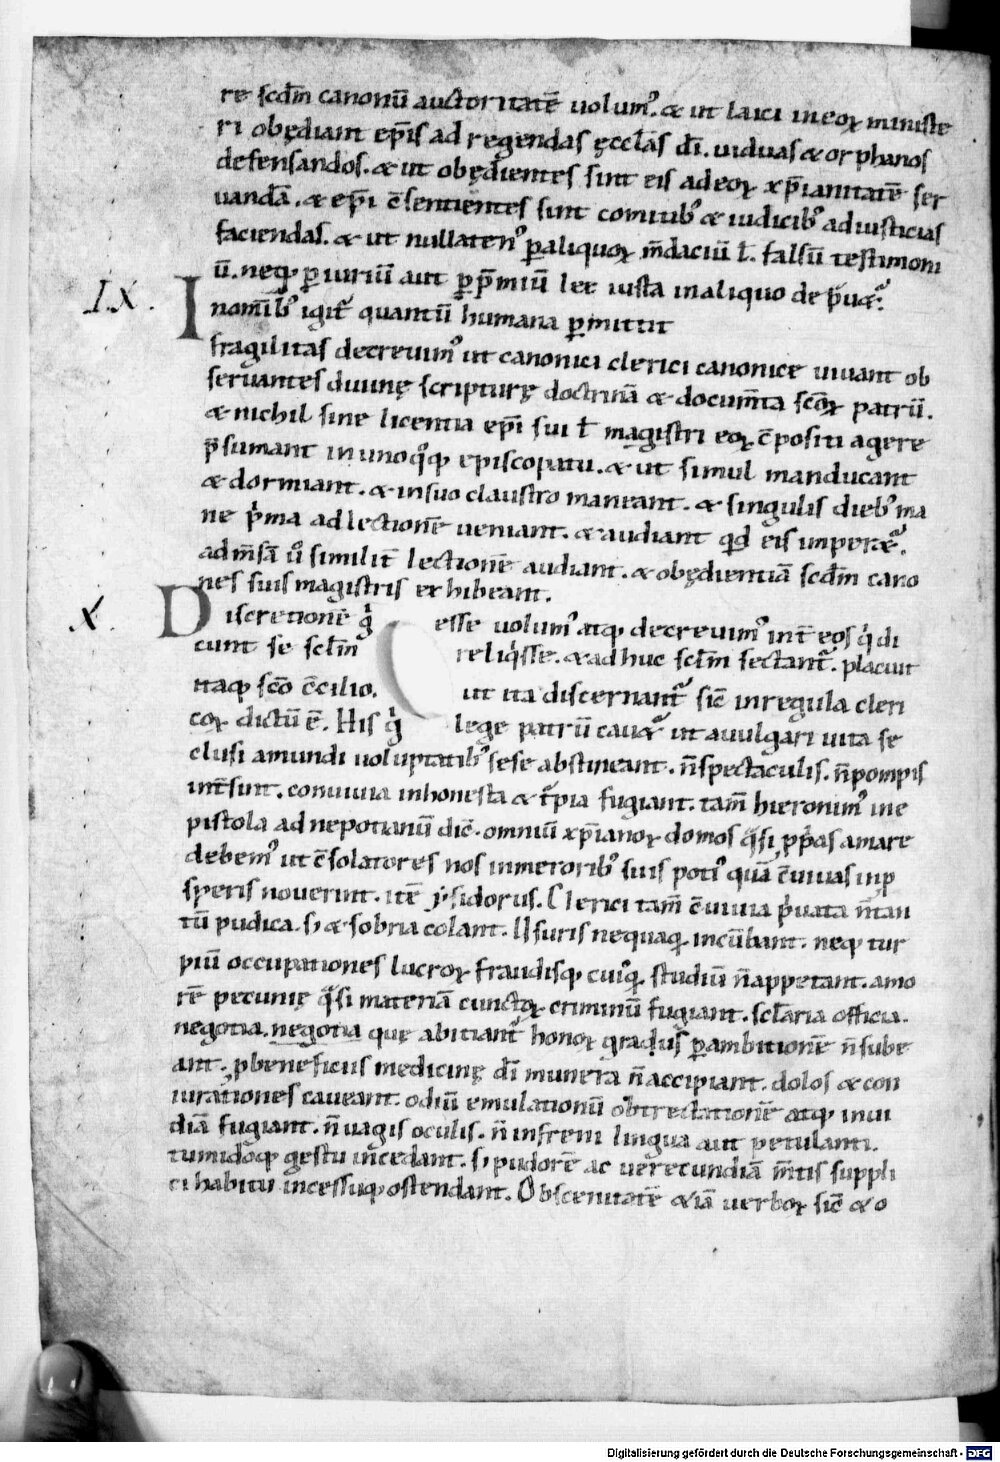 re scd̄m canonū auctoritatē uolum᾽. & ut laici in eoꝝ ministe
ri obędiant ep̄is ad regendas ęccl̄as dī. uiduas & orphanos
defensandos. & ut obędientes sint eis ad eoꝝ xp̄ianitatē ser
uandā. & ep̄i c̄sentientes sint comitib᾽ & iudicib᾽ ad iusticias
faciendas. & ut nullaten᾽ ꝑ aliquoꝝ m̄daciū ł. falsū testimoni
ū. neqꝫ ꝑiuriū aut ꝑ p̄miū lex iusta in aliquo deprauet᾽.
IX. Inomīb᾽ igit᾽ quantū humana ꝑmittit
fragilitas decreuim᾽ ut canonici clerici canonice uiuant ob
seruantes diuinę scripturę doctrinā & docum̄ta sc̄oꝝ patrū.
& nichil sine licentia ep̄i sui ł magistri eoꝝ c̄positi agere
p̄sumant in unoqͦqꝫ episcopatu. & ut simul manducant
& dormiant. & in suo claustro maneant. & singulis dieb᾽ ma
ne pͥma ad lectionē ueniant. & audiant qͥd eis imperet᾽.
ad m̄sā uͦ similit̄ lectionē audiant. & obędientiā scd̄m cano
nes suis magistris exhibeant.
X. Discretionē gͥ esse uolum᾽ atqꝫ decreuim᾽ int̄ eos qͥ di
cunt se scl̄m reliqͥsse. & adhuc scl̄m sectant᾽. placuit
itaqꝫ sc̄o c̄cilio. ut ita discernant᾽ sic̄ in regula cleri
coꝝ dictū ē. His gͥ lege patrū cauet᾽ ut a uulgari uita se
clusi a mundi uoluptatib᾽ sese abstineant. n̄ spectaculis. n̄ pompis
int̄sint. conuiuia inhonesta & t᾽pia fugiant. tam̄ hieronim᾽ in e
pistola ad nepotianū dic̄. omniū xp̄ianoꝝ domos qͣsi ꝓpͥas amare
debem᾽ ut c̄solatores nos in meroribꝰ suis poti᾽ quā c̄uiuas in ꝓ
speris nouerint. itē ysidorus. Clerici tam̄ c̄uiuia pͥuata n̄ tan
tū pudica. sꝫ & sobria colant. Usuris nequaqͣ incūbant. neqꝫ tur
piū occupationes lucroꝝ fraudisqꝫ cuiusqͣ studiū n̄ appetant. amo
rē pecunię qͣsi materiā cunctoꝝ criminū fugiant. scl̄aria officia.
negotia. negotia quę abitiant᾽ honoꝝ gradus ꝑ ambitionē n̄ sube
ant. ꝓ beneficiis medicinę dī munera n̄ accipiant. dolos & con
iurationes caueant. odiū emulationū obtrectationē atqꝫ inui
diā fugiant. n̄ uagis oculis. n̄ infreni lingua aut petulanti.
tumidoqꝫ gestu incedant. sꝫ pudorē ac uerecundiā m̄tis suppli
ci habitu incessuqꝫ ostendant. Obscenitatē &iā uerboꝝ sic̄ & o
Digitalisierung gefördert durch die Deutsche Forschungsgemeinschaft - DFG